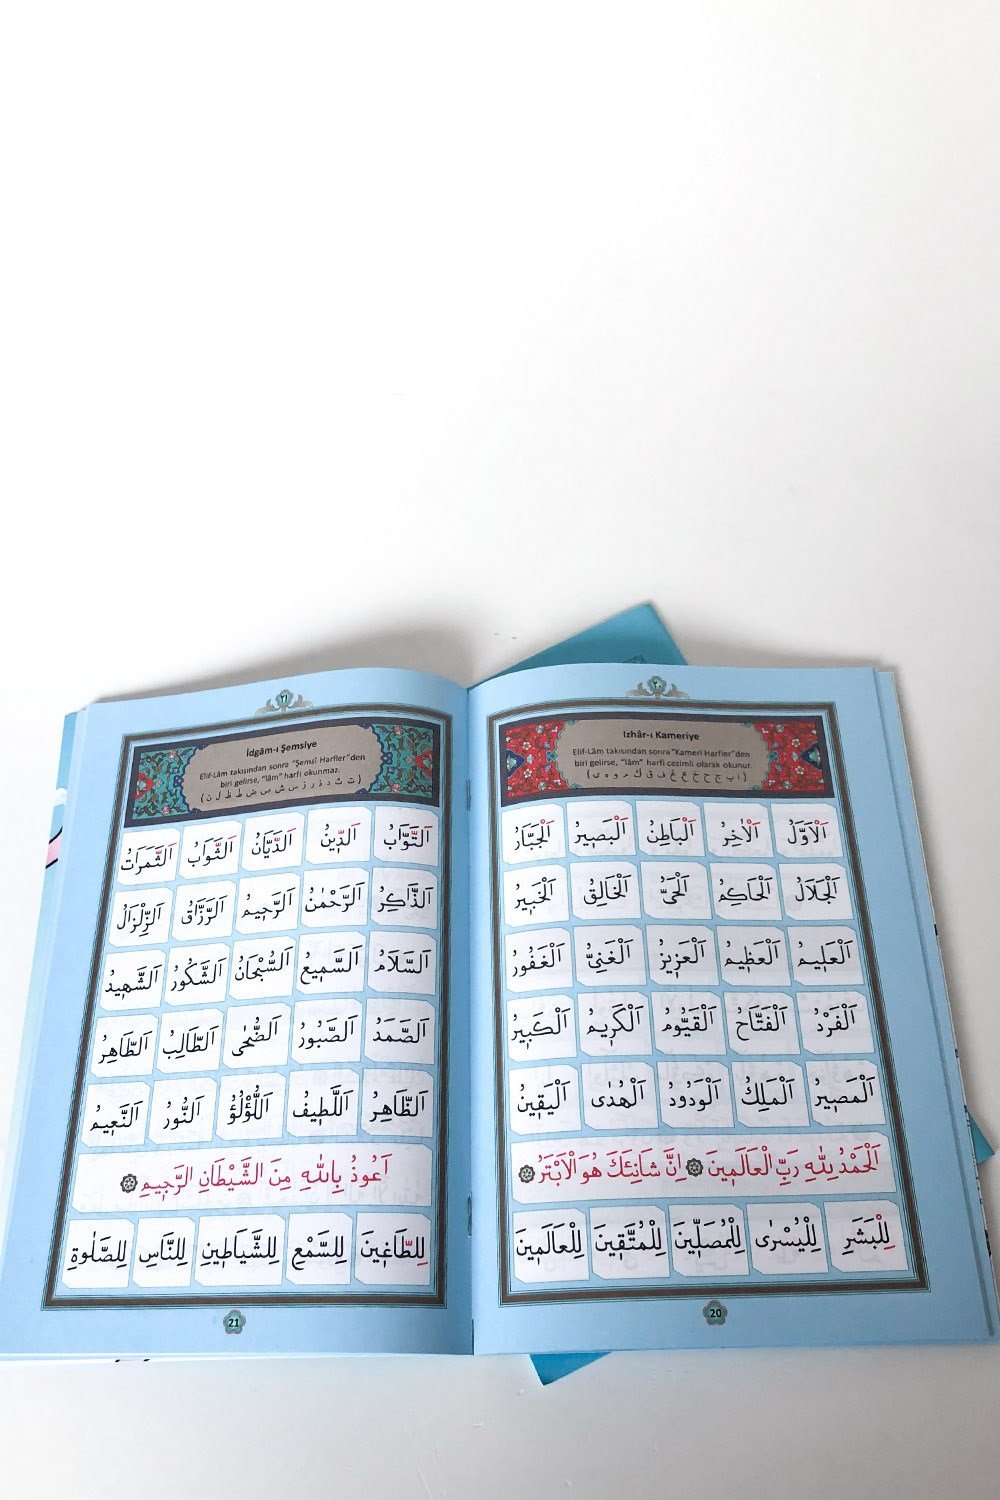 ٢٠
Izhâr-ı Kameriye
Elif-Lâm takısından sonra "Kamerî Harfler"den
biri gelirse, "lâm" harfi cezimli olarak okunur.
( ا ب ج ح خ ع غ ف ق ك م و ه ى )
اَلْاَوَّلُ اَلْاٰخِرُ اَلْبَاطِنُ اَلْبَصٖيرُ اَلْجَبَّارُ
اَلْجَلَالُ اَلْحَاكِمُ اَلْحَىُّ اَلْخَالِقُ اَلْخَبٖيرُ
اَلْعَلٖيمُ اَلْعَظٖيمُ اَلْعَزٖيزُ اَلْغَنِىُّ اَلْغَفُورُ
اَلْفَرْدُ اَلْفَتَّاحُ اَلْقَيُّومُ اَلْكَرٖيمُ اَلْكَبٖيرُ
اَلْمَصٖيرُ اَلْمَلِكُ اَلْوَدُودُ اَلْهُدٰى اَلْيَقٖينُ
اَلْحَمْدُ لِلّٰهِ رَبِّ الْعَالَمٖينَ اِنَّ شَانِئَكَ هُوَ الْاَبْتَرُ
لِلْبَشَرِ لِلْيُسْرٰى لِلْمُصَلّٖينَ لِلْمُتَّقٖينَ لِلْعَالَمٖينَ
20
٢١
İdgâm-ı Şemsiye
Elif-Lâm takısından sonra "Şemsî Harfler"den
biri gelirse, "lâm" harfi okunmaz.
( ت ث د ذ ر ز س ش ص ض ط ظ ل ن )
اَلتَّوَّابُ اَلدّٖينُ اَلدَّيَّانُ اَلثَّوَابُ اَلثَّمَرَاتُ
اَلذَّاكِرُ اَلرَّحْمٰنُ اَلرَّحٖيمُ اَلرَّزَّاقُ اَلزِّلْزَالُ
اَلسَّلَامُ اَلسَّمٖيعُ اَلسُّبْحَانُ اَلشَّكُورُ اَلشَّهٖيدُ
اَلصَّمَدُ اَلصَّبُورُ اَلضُّحٰى اَلطَّالِبُ اَلطَّاهِرُ
اَلظَّاهِرُ اَللَّطٖيفُ اَللُّؤْلُؤُ اَلنُّورُ اَلنَّعٖيمُ
اَعُوذُ بِاللّٰهِ مِنَ الشَّيْطَانِ الرَّجٖيمِ
لِلطَّاغٖينَ لِلسَّمْعِ لِلشَّيَاطٖينِ لِلنَّاسِ لِلصَّلٰوةِ
21